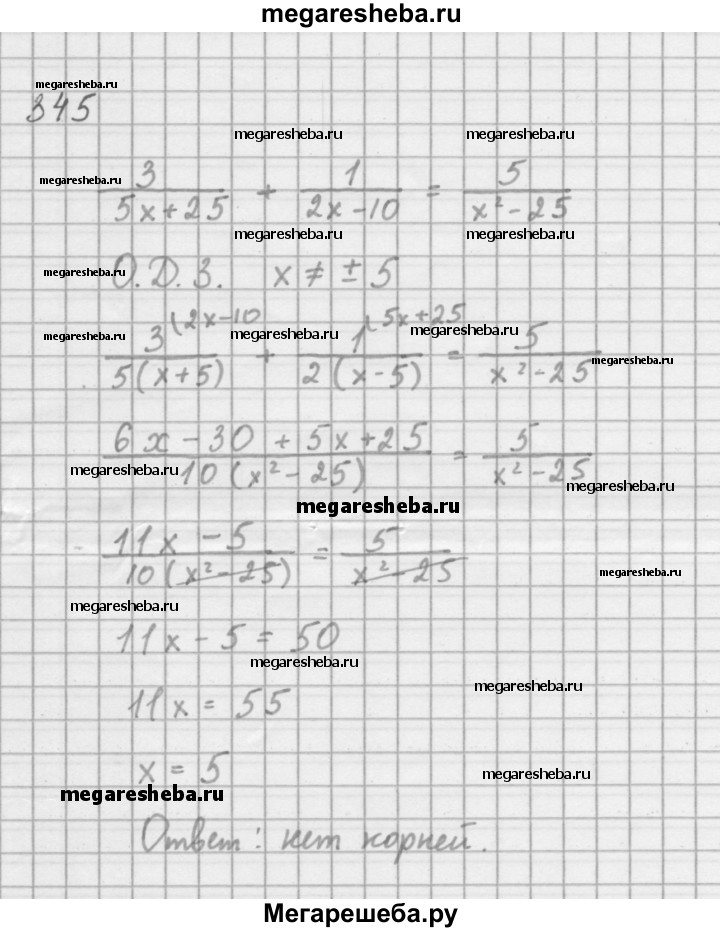 megaresheba.ru
megaresheba.ru
345
megaresheba.ru megaresheba.ru
megaresheba.ru
3/(5x+25) + 1/(2x-10) = 5/(x²-25)
megaresheba.ru megaresheba.ru
megaresheba.ru О.Д.З. x ≠ ± 5
3(2x-10 / 5(x+5) + 1(5x+25 / 2(x-5) = 5/(x²-25)
megaresheba.ru megaresheba.ru megaresheba.ru
megaresheba.ru
(6x-30+5x+25)/(10(x²-25)) = 5/(x²-25)
megaresheba.ru megaresheba.ru
megaresheba.ru
(11x-5)/(10(x²-25)) = 5/(x²-25)
megaresheba.ru
megaresheba.ru
11x - 5 = 50
megaresheba.ru
megaresheba.ru
11x = 55
x = 5
megaresheba.ru
megaresheba.ru
Ответ: нет корней.
Мегарешеба.ру